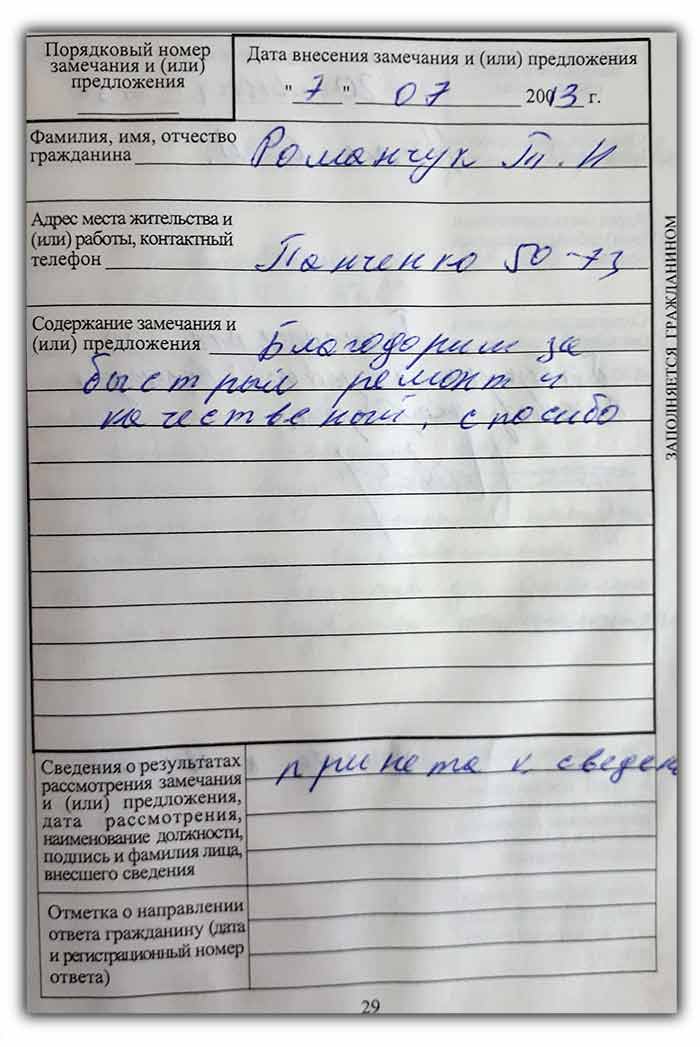 Порядковый номер
замечания и (или)
предложения
Дата внесения замечания и (или) предложения
"7" 07 20013 г.
Фамилия, имя, отчество
гражданина Романчук Т. И
Адрес места жительства и
(или) работы, контактный
телефон Панченко 50-73
Содержание замечания и
(или) предложения Благодорим за
быстрый ремонт и
качественый, спосибо
ЗАПОЛНЯЕТСЯ ГРАЖДАНИНОМ
Сведения о результатах
рассмотрения замечания
и (или) предложения,
дата рассмотрения,
наименование должности,
подпись и фамилия лица,
внесшего сведения
принета к сведен
Отметка о направлении
ответа гражданину (дата
и регистрационный номер
ответа)
29